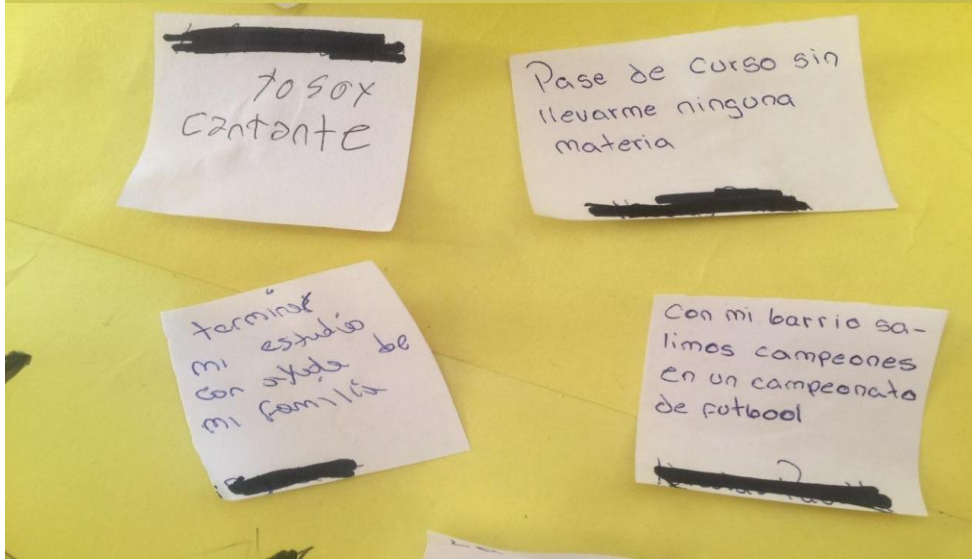 yo soy
cantante
Pase de curso sin
llevarme ninguna
materia
terminar
mi estudio
con ayuda be
mi familia
Con mi barrio sa-
limos campeones
en un campeonato
de futbool